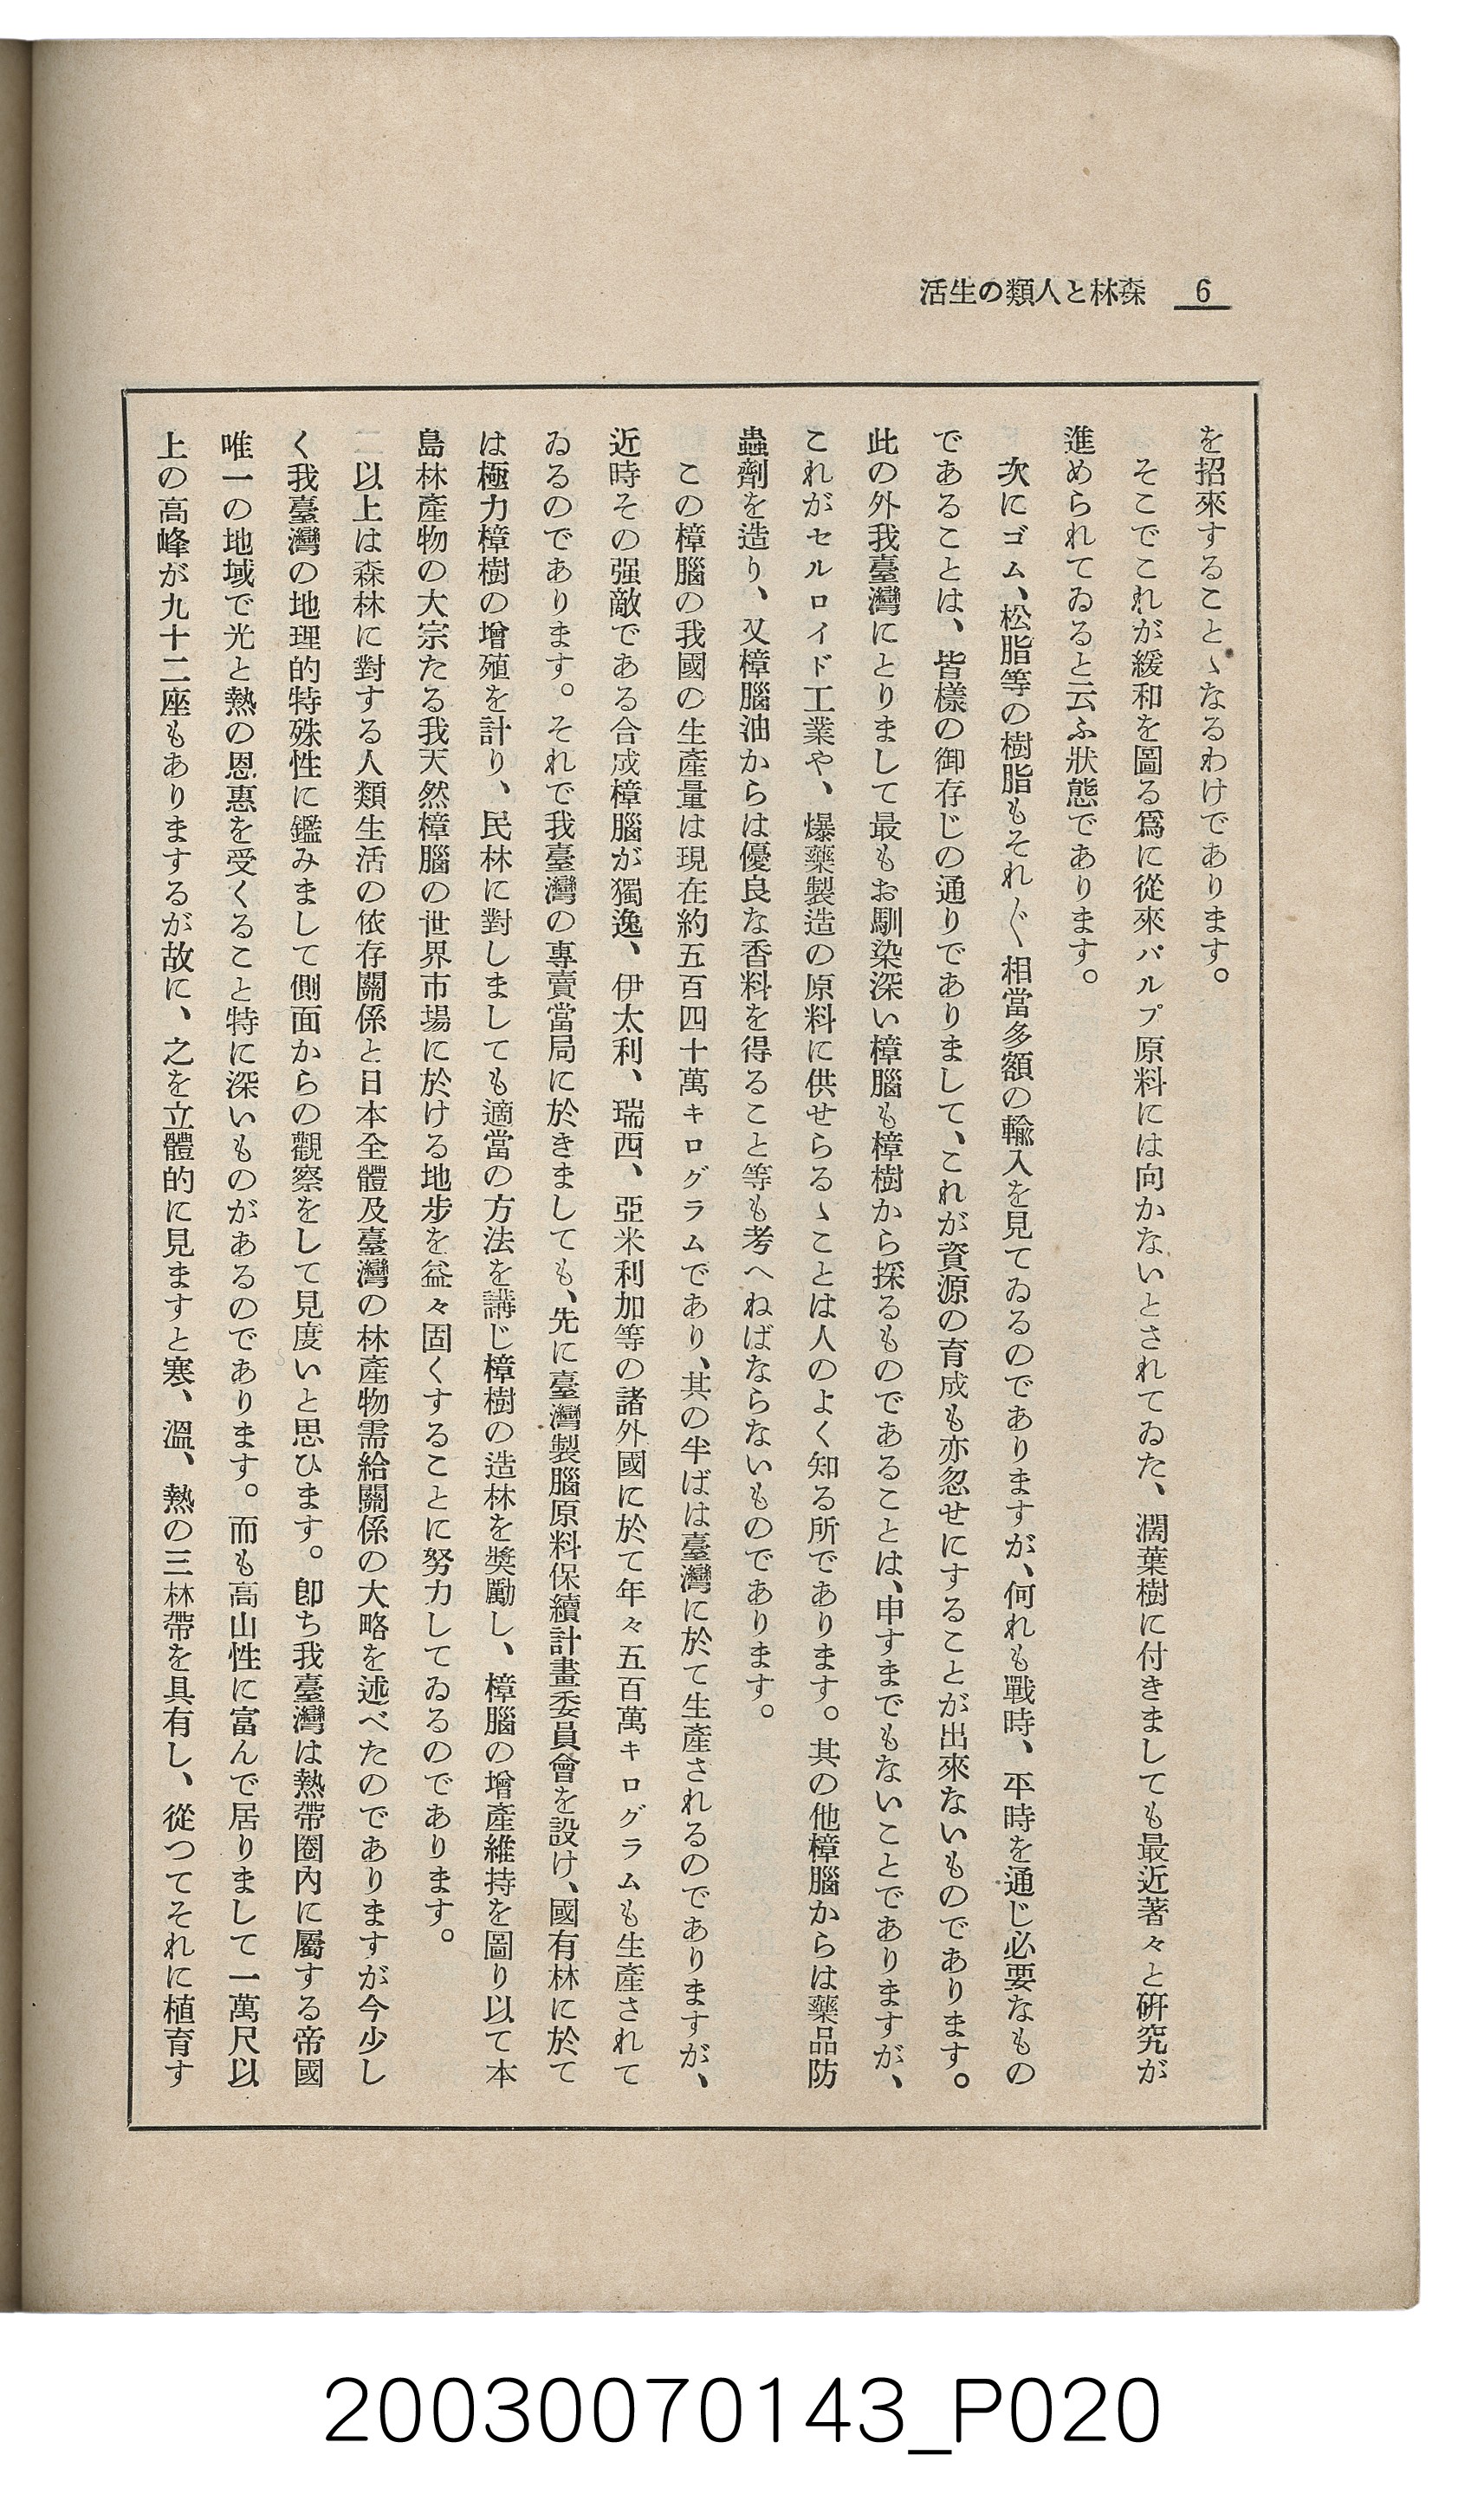 6 森林と人類の生活
を招來することゝなるわけであります。
そこでこれが緩和を圖る爲に從來パルプ原料には向かないとされてゐた、濶葉樹に付きましても最近著々と硏究が
進められてゐると云ふ狀態であります。
次にゴム、松脂等の樹脂もそれ〴〵相當多額の輸入を見てゐるのでありますが、何れも戰時、平時を通じ必要なもの
であることは、皆樣の御存じの通りでありまして、これが資源の育成も亦忽せにすることが出來ないものであります。
此の外我臺灣にとりまして最もお馴染深い樟腦も樟樹から採るものであることは、申すまでもないことでありますが、
これがセルロイド工業や、爆藥製造の原料に供せらるゝことは人のよく知る所であります。其の他樟腦からは藥品防
蟲劑を造り、又樟腦油からは優良な香料を得ること等も考へねばならないものであります。
この樟腦の我國の生產量は現在約五百四十萬キログラムであり、其の半ばは臺灣に於て生產されるのでありますが、
近時その强敵である合成樟腦が獨逸、伊太利、瑞西、亞米利加等の諸外國に於て年々五百萬キログラムも生產されて
ゐるのであります。それで我臺灣の專賣當局に於きましても、先に臺灣製腦原料保續計畫委員會を設け、國有林に於て
は極力樟樹の增殖を計り、民林に對しましても適當の方法を講じ樟樹の造林を奬勵し、樟腦の增產維持を圖り以て本
島林產物の大宗たる我天然樟腦の世界市場に於ける地步を益々固くすることに努力してゐるのであります。
以上は森林に對する人類生活の依存關係と日本全體及臺灣の林產物需給關係の大略を述べたのでありますが今少し
く我臺灣の地理的特殊性に鑑みまして側面からの觀察をして見度いと思ひます。卽ち我臺灣は熱帶圈內に屬する帝國
唯一の地域で光と熱の恩惠を受くること特に深いものがあるのであります。而も高山性に富んで居りまして一萬尺以
上の高峰が九十二座もありまするが故に、之を立體的に見ますと寒、溫、熱の三林帶を具有し、從つてそれに植育す
20030070143_P020